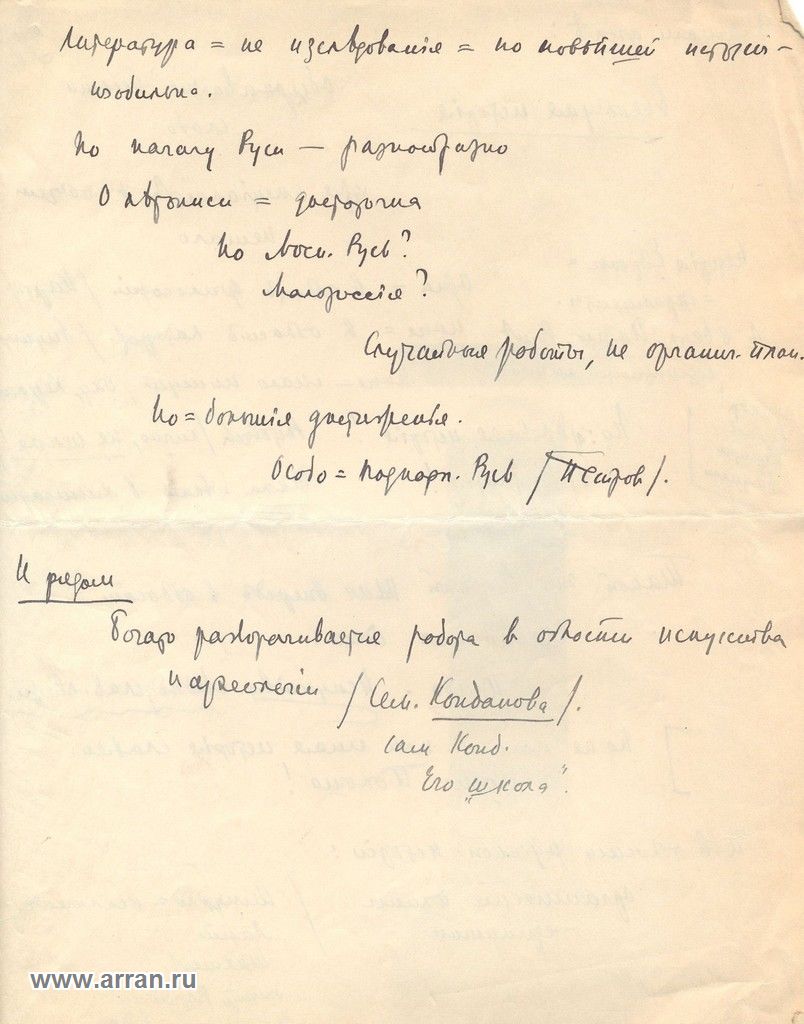 Литература = не изслѣдованія = по новѣйшей истории –
изобильна.
По началу Руси — разнообразно
О лѣтописи = достаточна
По Моск. Русь?
Малороссія?
Случайные работы, не организ. план.
Но = большія достиженья.
Особо = Подкарп. Русь / Петров /.
И рядом
Богато разворачивается работа в области искусства
и археологіи / Сем. Кондакова /.
сам Конд.
Его "школа".
www.arran.ru